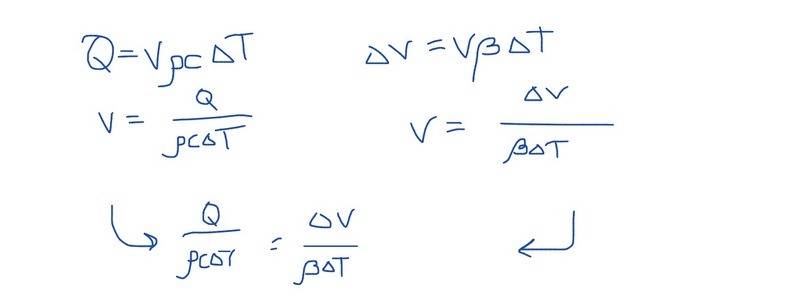 Q = VρcΔT ΔV = VβΔT
V = Q / ρcΔT V = ΔV / βΔT
Q / ρcΔT = ΔV / βΔT